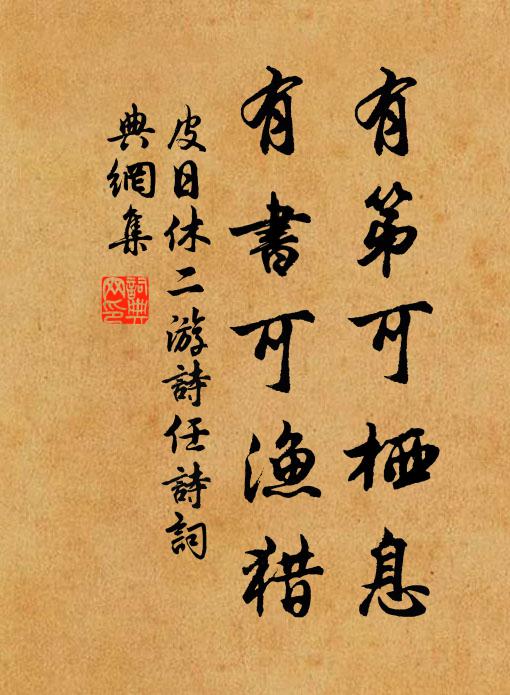 有第可栖息
有書可漁猎
皮日休二游詩任詩詞
典網集
詞典
网印